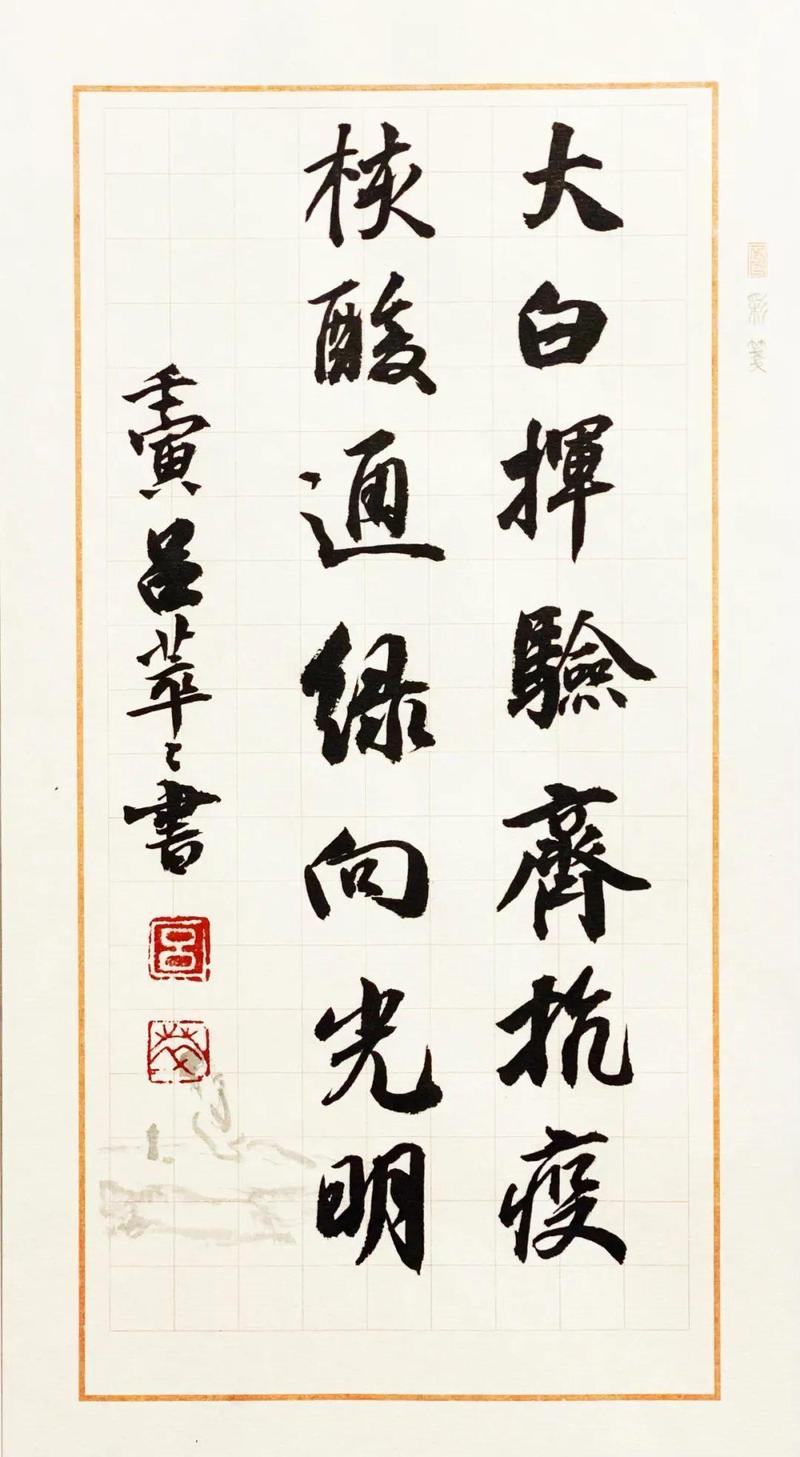 大白揮驗齊抗疫
核酸通緑向光明
壬寅吕書
吕
彩箋